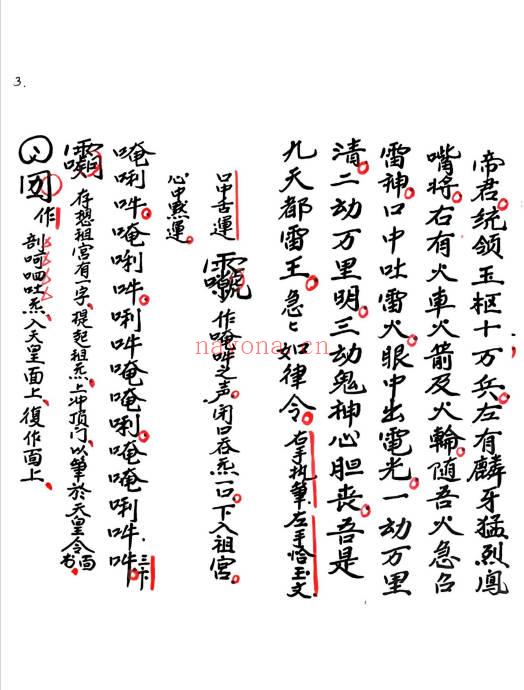 3.
帝君。统领玉枢十万兵。左有麟牙猛烈鳯
嘴将。右有火車火箭及火輪。随吾火急召
雷神。口中吐雷火。眼中出電光。一动万里
清。二动万里明。三动鬼神心胆丧。吾是
九天都雷王。急々如律令。右手执筆。左手恰玉文.
口中舌運
作唵吽之声。闭口吞炁一口。下入祖宫。
心中黙運。
唵唎吽。唵唎吽。唎吽唵唵唎。唵唵唎吽吽。三卞
存想祖宫有一字、提起祖炁、上冲頂门、以筆於天皇令面书、
作
剖呵呬吐炁、入天皇面上、復作面上、
nayona.cn